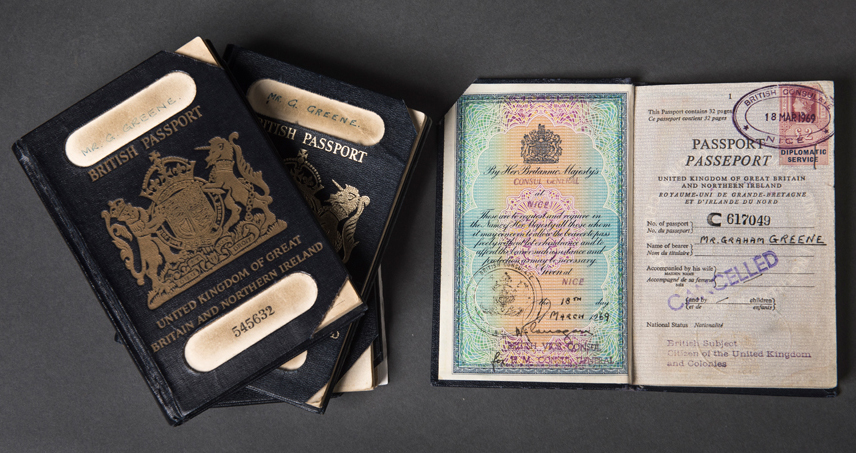 MR. G. GREENE.
BRITISH PASSPORT
UNITED KINGDOM OF GREAT
BRITAIN AND NORTHERN IRELAND
545632
MR. G. GREENE.
BRITISH PASSPORT
By Her Britannic Majesty's
CONSUL GENERAL
at
NICE
These are to request and require in
the Name of Her Majesty all those whom
it may concern to allow the bearer to pass
freely without let or hindrance and to
afford the bearer such assistance and
protection as may be necessary.
Given at
NICE
the 18TH day
MARCH 1969
BRITISH VICE CONSUL
for H. M. CONSUL GENERAL
1
This Passport contains 32 pages
Ce passeport contient 32 pages
BRITISH CONSULATE
18 MAR 1969
NICE
DIPLOMATIC
SERVICE
PASSPORT
PASSEPORT
UNITED KINGDOM OF GREAT BRITAIN
AND NORTHERN IRELAND
ROYAUME-UNI DE GRANDE-BRETAGNE
ET D'IRLANDE DU NORD
No. of passport
No. du passeport
C 617049
Name of bearer
Nom du titulaire
MR. GRAHAM GREENE
Accompanied by his wife
Accompagné de sa femme
CANCELLED
and by
et de
children
enfants
National Status Nationalité
British Subject
Citizen of the United Kingdom
and Colonies